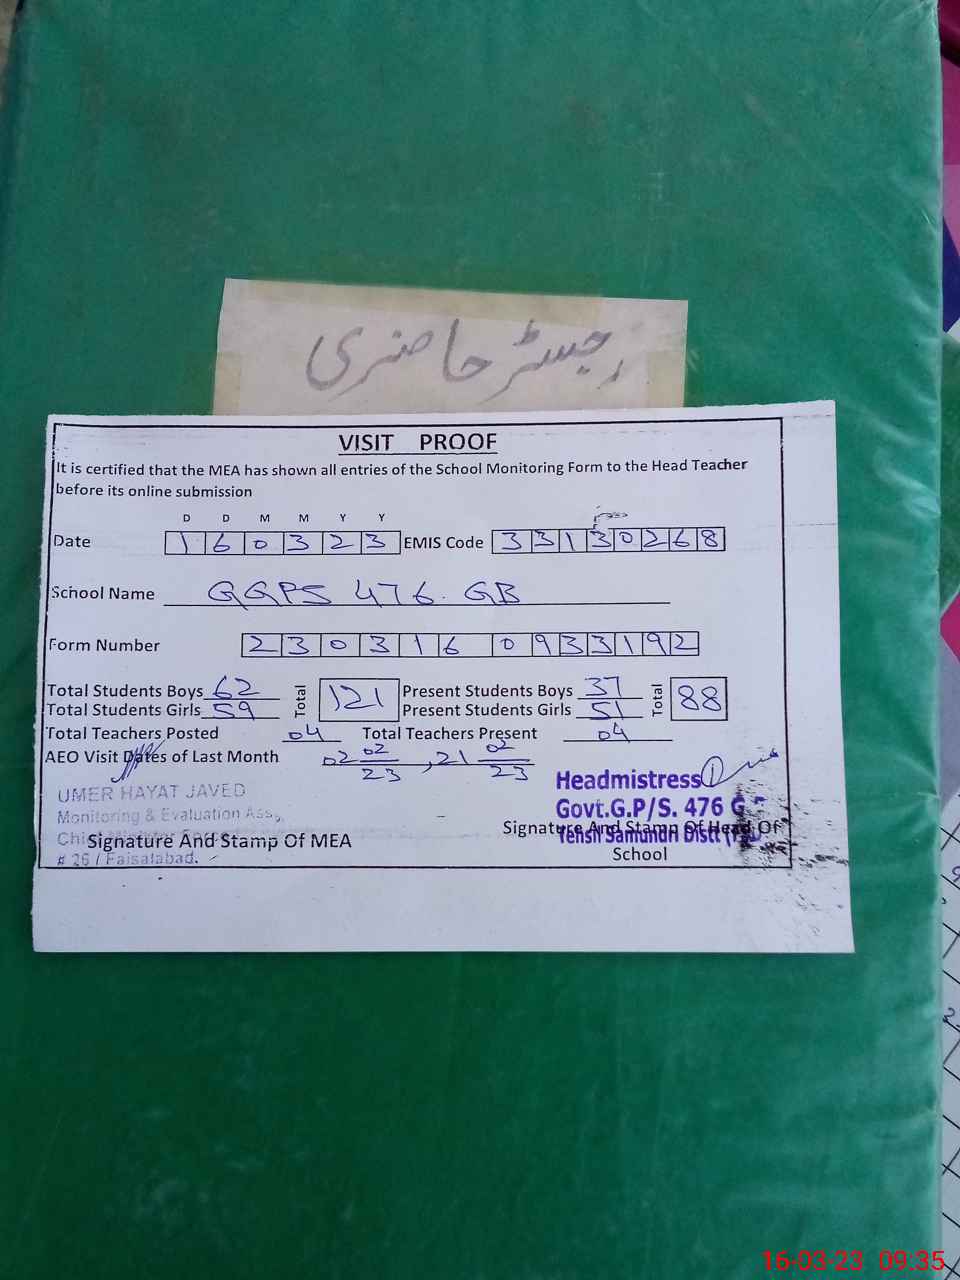 رجسٹر حاضری
VISIT PROOF
It is certified that the MEA has shown all entries of the School Monitoring Form to the Head Teacher
before its online submission
D D M M Y Y
Date 1 6 0 3 2 3 EMIS Code 3 3 1 3 0 2 6 8
School Name GGPS 476. GB
Form Number 2 3 0 3 1 6 0 9 3 3 1 9 2
Total Students Boys 62 Total 121 Present Students Boys 37 Total 88
Total Students Girls 59 Present Students Girls 51
Total Teachers Posted 04 Total Teachers Present 04
AEO Visit Dates of Last Month 02 02/23, 21 02/23
UMER HAYAT JAVED
Monitoring & Evaluation Ass,
Signature And Stamp Of MEA
# 26 / Faisalabad.
Headmistress
Govt.G.P/S. 476 G
Signature And Stamp Of Head Of
School
16-03-23 09:35